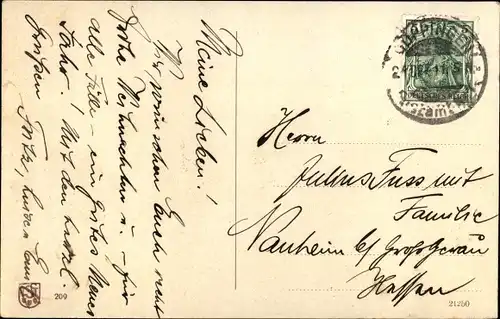 Meine Lieben!
Wir wünschen Euch recht
frohe Weihnachten u. – für
alle Fälle – ein gutes Neues
Jahr! Mit den herzl.
Grüßen Fritz,
209
GÖPPINGEN
Herrn
Julius Fuss mit
Familie
Nauheim b/ Groß Gerau
Hessen
21250